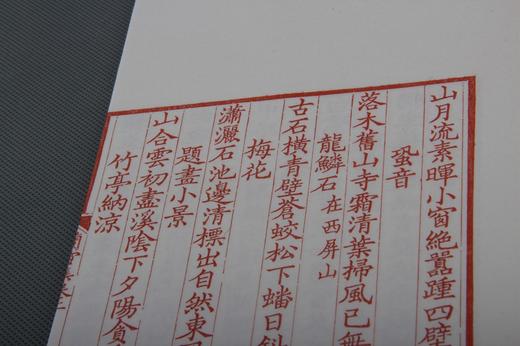 山月流素暉小窗絶囂踵四壁
蛩音
落木舊山寺霜清葉掃風已無
龍鱗石在西屏山
古石橫青壁蒼蛟松下蟠日斜
梅花
瀟灑石池邊清標出自然東
題畫小景
山合雲初盡溪陰下夕陽貪
竹亭納涼